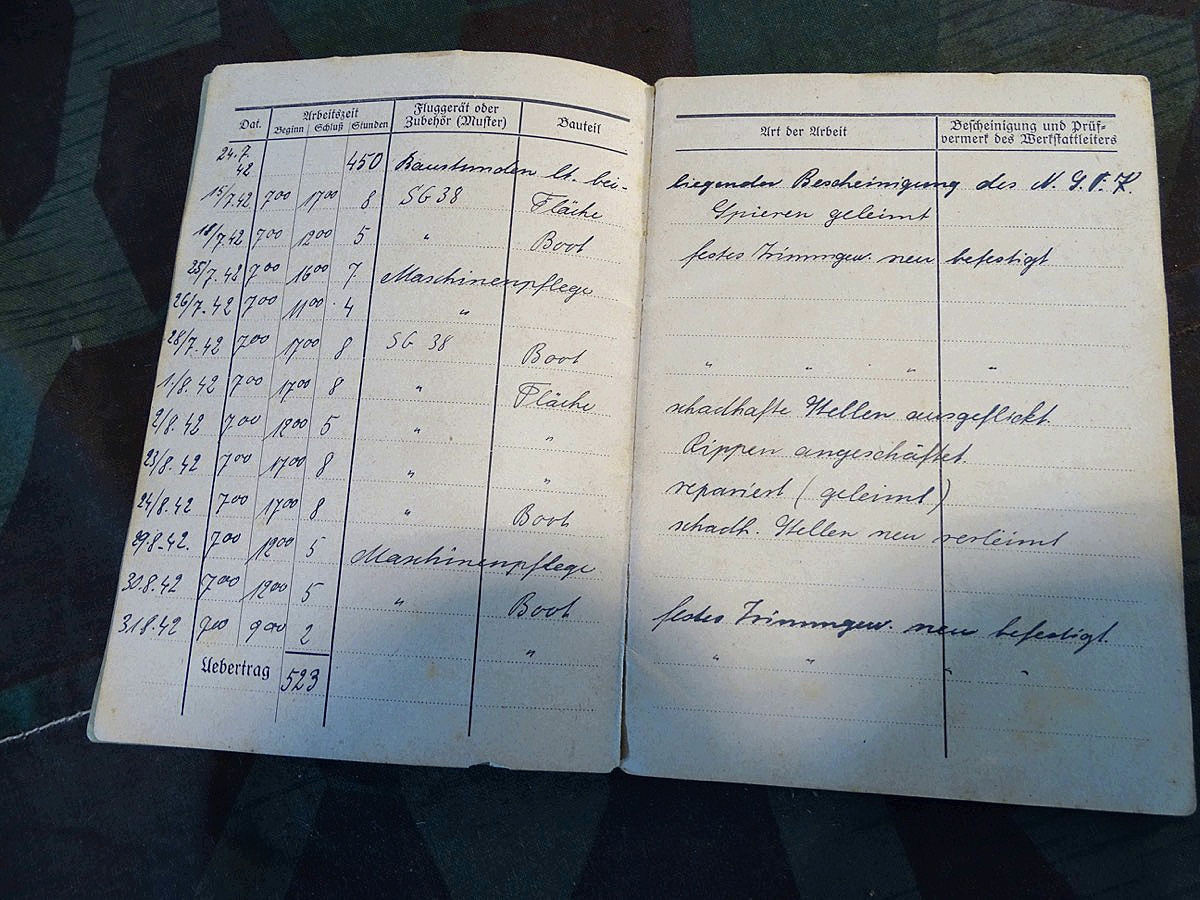 Dat. Arbeitszeit Fluggerät oder Bauteil
Beginn Schluß Stunden Zubehör (Muster)
Art der Arbeit Bescheinigung und Prüf-
vermerk des Werkstattleiters
24.7. 42 450 Baustunden lt. bei- liegender Bescheinigung des N. S. F. K.
15/7.42 7⁰⁰ 17⁰⁰ 8 SG 38 Fläche Spieren geleimt
18/7.42 7⁰⁰ 12⁰⁰ 5 " Boot festes Trimmgew. neu befestigt
25/7.42 7⁰⁰ 16⁰⁰ 7 Maschinenpflege
26/7.42 7⁰⁰ 11⁰⁰ 4 "
28/7.42 7⁰⁰ 17⁰⁰ 8 SG 38 Boot " " " "
1/8.42 7⁰⁰ 17⁰⁰ 8 " Fläche schadhafte Stellen ausgeflickt.
2/8.42 7⁰⁰ 12⁰⁰ 5 " " Rippen angeschäftet.
23/8.42 7⁰⁰ 17⁰⁰ 8 " " repariert (geleimt)
24/8.42 7⁰⁰ 17⁰⁰ 8 " Boot schadh. Stellen neu verleimt
29.8.42. 7⁰⁰ 12⁰⁰ 5 Maschinenpflege
30.8.42 7⁰⁰ 12⁰⁰ 5 " Boot festes Trimmgew. neu befestigt.
31.8.42 7⁰⁰ 9⁰⁰ 2 " " " " "
Uebertrag 523